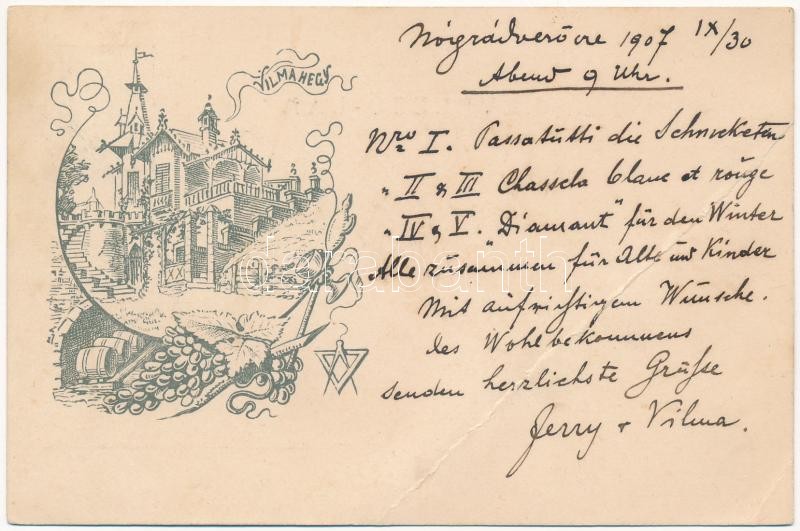 VILMAHEGY
Nógrádverőcze 1907 IX/30
Abend 9 Uhr.
Nro I. Passatutti die Schneketen
" II & III Chassela blanc et rouge
" IV & V. "Diamant" für den Winter
Alle zusammen für Alte und Kinder
Mit aufrichtigem Wunsche
des Wohlbekommens
senden herzlichste Grüße
Jerry & Vilma.
darabanth